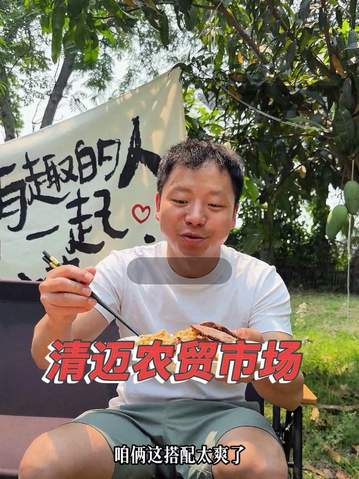 有趣的人
一起
清迈农贸市场
咱俩这搭配太爽了